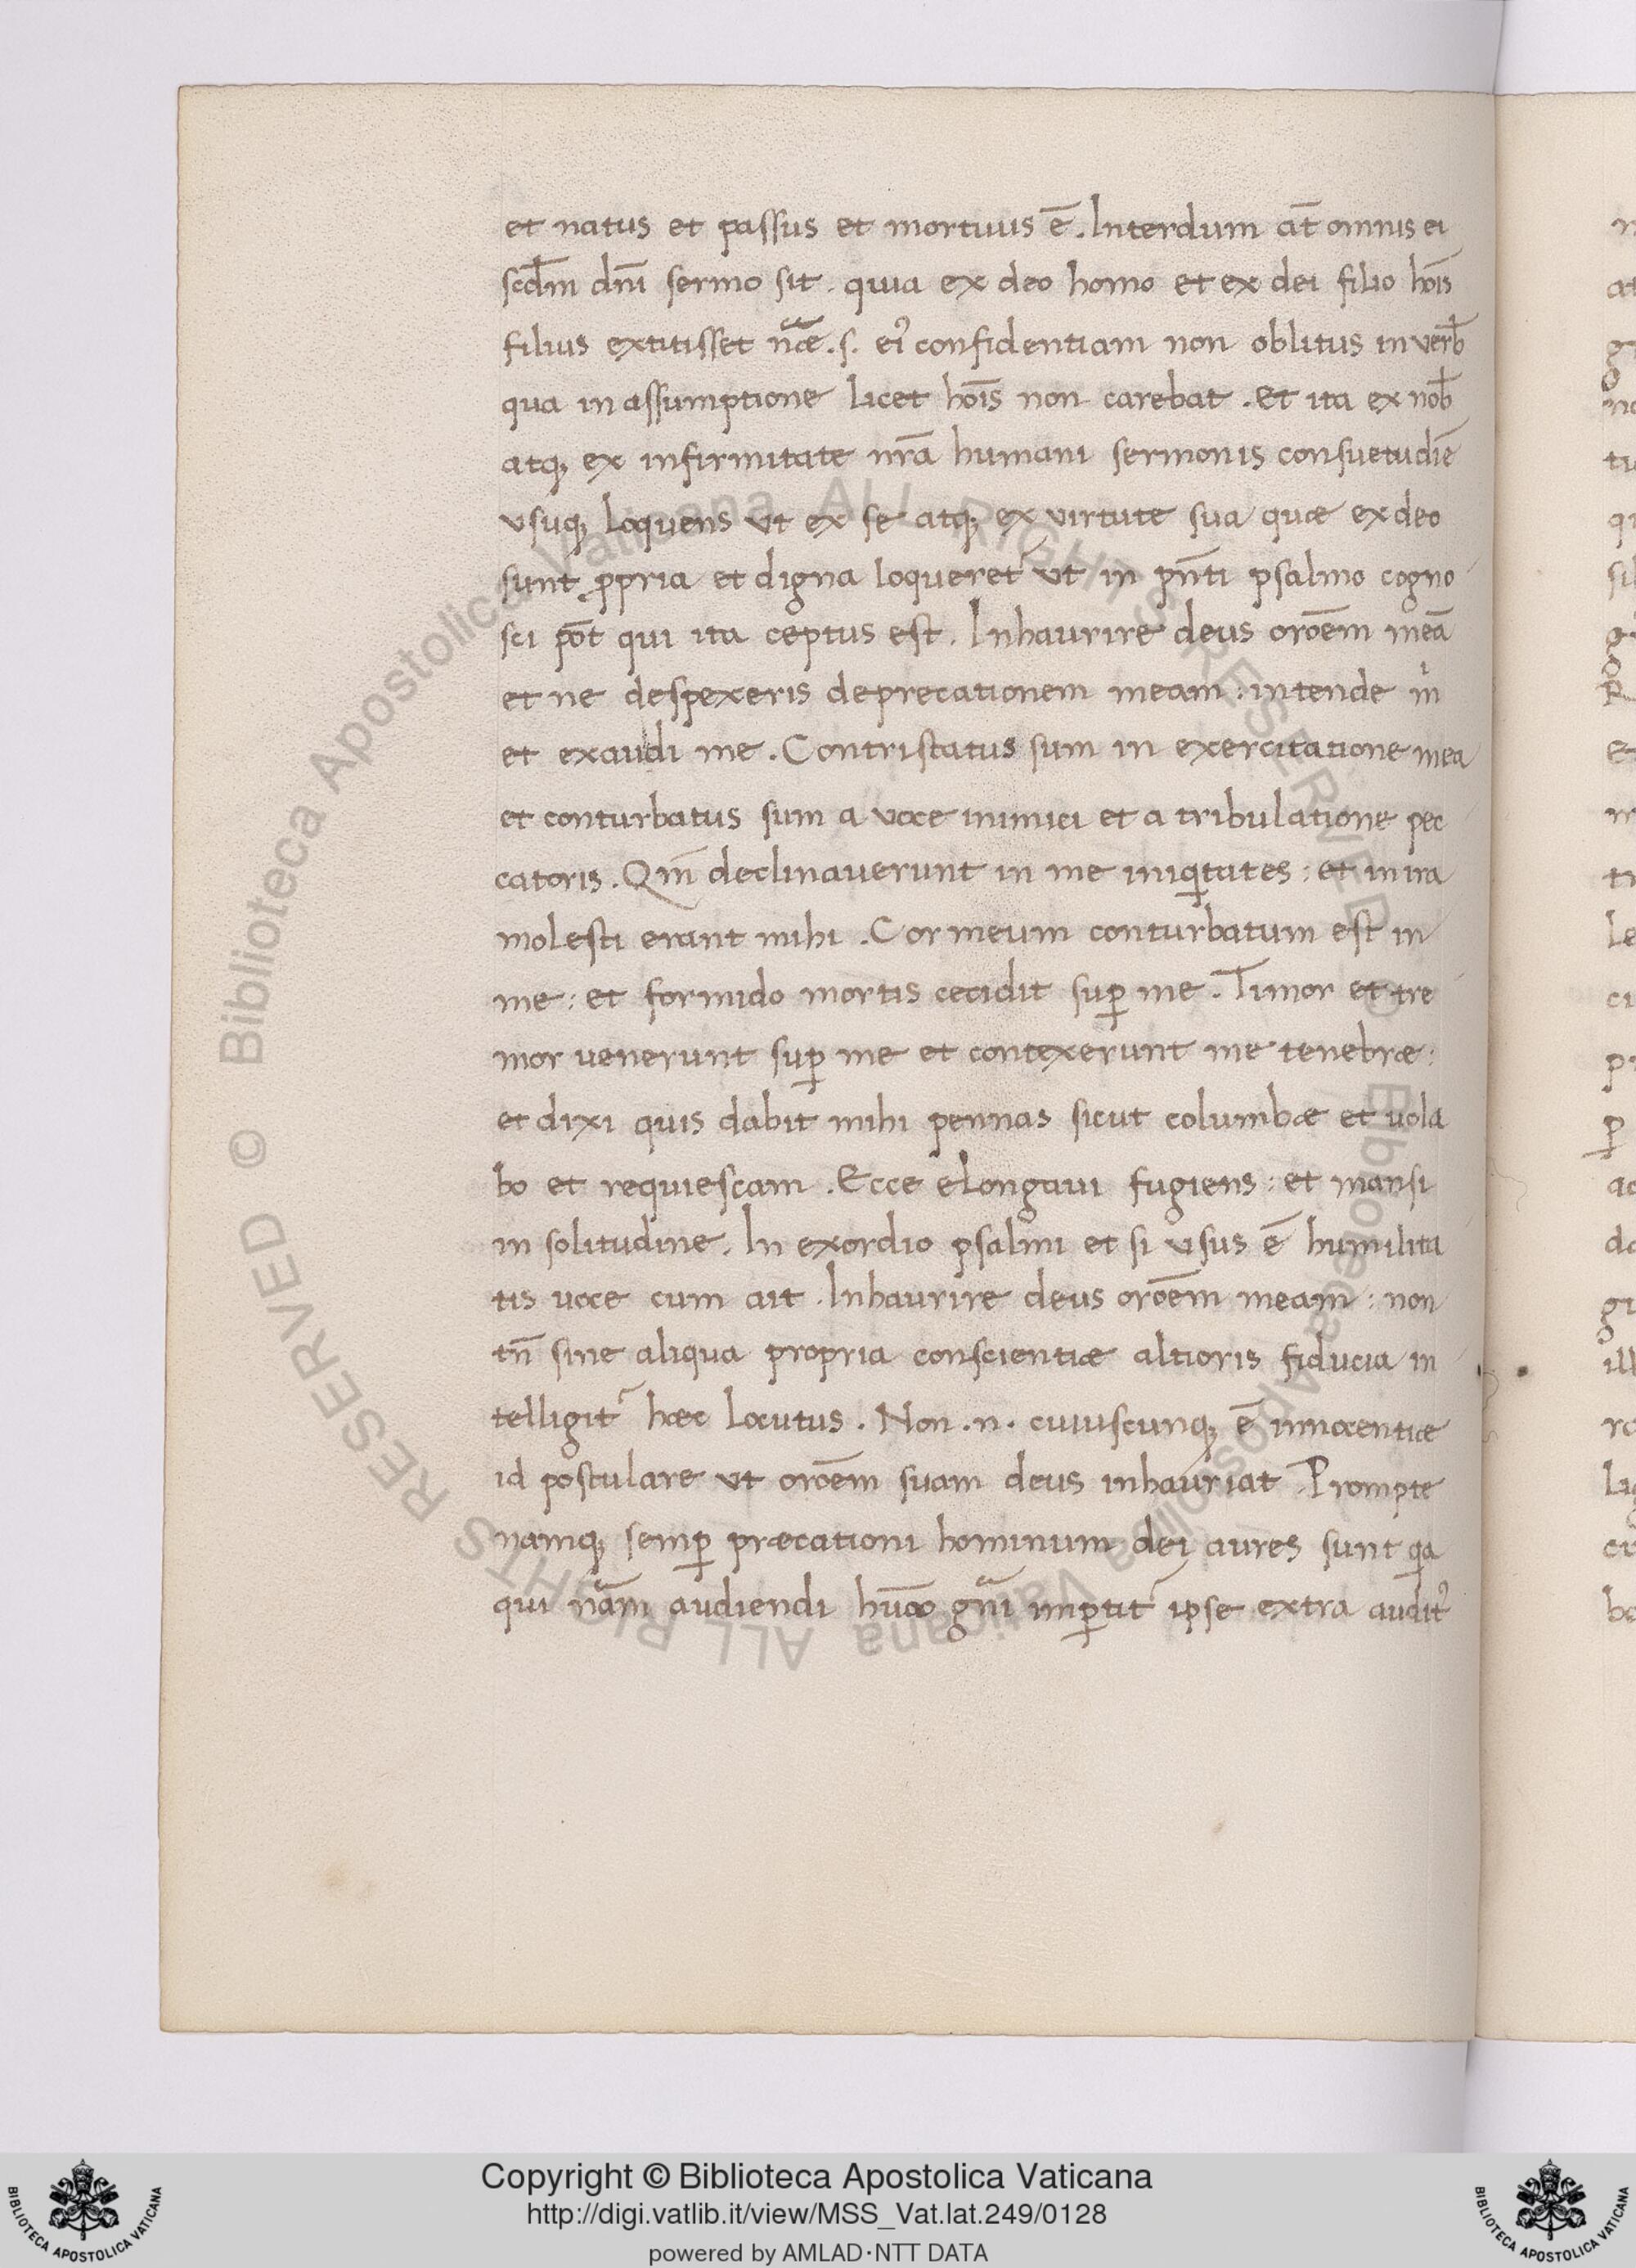 et natus et passus et mortuus ē. Interdum at̄ omnis ei
scd̄m dn̄i sermo sit. quia ex deo homo et ex dei filio hoīs
filius extitisset nāe. s. ei᷒ confidentiam non oblitus in verb̄
qua in assumptione licet hoīs non carebat. et ita ex nob̄
atq; ex infirmitate nr̄a humani sermonis consuetudiē
usuq; loquens ut ex se atq; ex virtute sua quæ ex deo
sunt ꝓpria et digna loqueret᷑ ut in pn̄ti psalmo cogno
sci pōt qui ita ceptus est. Inhaurire deus orōem meā
et ne despexeris deprecationem meam: intende m̍
et exaudi me. Contristatus sum in exercitatione mea
et conturbatus sum a voce inimici et a tribulatione pec
catoris. Qm̄ declinaverunt in me iniqͥtates: et in ira
molesti erant mihi. Cor meum conturbatum est in
me: et formido mortis cecidit suꝑ me. Timor et tre
mor uenerunt suꝑ me et contexerunt me tenebræ:
et dixi quis dabit mihi pennas sicut columbæ et uola
bo et requiescam. Ecce elongaui fugiens: et mansi
in solitudine. In exordio psalmi et si usus ē humilita
tis uoce cum ait. Inhaurire deus orōem meam: non
tn̄ sine aliqua propria conscientiæ altioris fiducia in
telligit᷑ hæc locutus. Non .n. cuiuscunq; ē innocentiæ
id postulare ut orōem suam deus inhauriat. Prompte
namq; semꝑ præcationi hominum dei aures sunt qͥa
qui nām audiendi hūāo gn̄i imꝑtit᷑ ipse extra audit᷑
Copyright © Biblioteca Apostolica Vaticana
http://digi.vatlib.it/view/MSS_Vat.lat.249/0128
powered by AMLAD·NTT DATA
BIBLIOTECA APOSTOLICA VATICANA
BIBLIOTECA APOSTOLICA VATICANA
© Biblioteca Apostolica Vaticana ALL RIGHTS RESERVED © Biblioteca Apostolica Vaticana ALL RIGHTS RESERVED